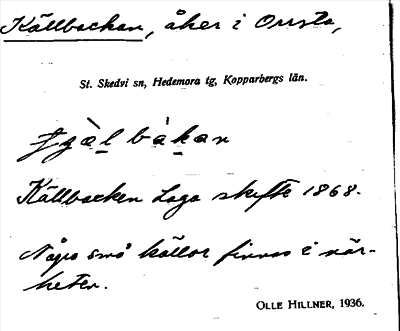 Källbackan, åker i Orrsta,
St. Skedvi sn, Hedemora tg, Kopparbergs län.
Källbacken Laga skifte 1868.
Några små källor finnas i när-
heten.
OLLE HILLNER, 1936.